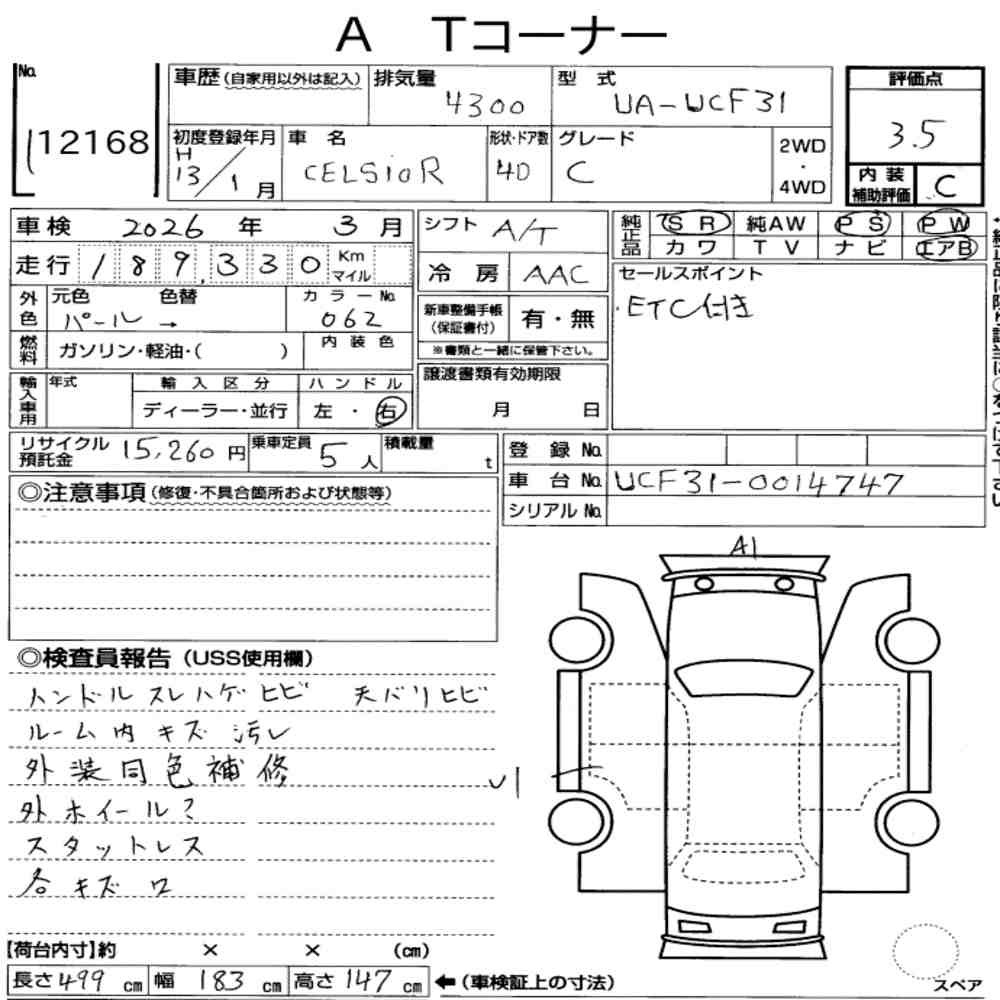 A Tコーナー
No.
12168
車歴(自家用以外は記入)
排気量
4300
型式
UA-UCF31
評価点
3.5
内装補助評価
C
初度登録年月
H
13/1月
車名
CELSioR
形状・ドア数
4D
グレード
C
2WD
・
4WD
車検 2026年 3月
走行 189,330 Km マイル
シフト A/T
冷房 AAC
純正品
SR 純AW PS PW
カワ TV ナビ エアB
セールスポイント
・ETC付き
外色
元色 色替
パール →
カラーNo.
062
新車整備手帳
(保証書付)
有・無
※書類と一緒に保管下さい。
燃料
ガソリン・軽油・( )
内装色
輸入車用
年式
輸入区分
ディーラー・並行
ハンドル
左・右
譲渡書類有効期限
月 日
リサイクル預託金 15,260円
乗車定員 5人
積載量 t
登録No.
車台No. UCF31-0014747
シリアルNo.
◎注意事項(修復・不具合箇所および状態等)
A1
◎検査員報告(USS使用欄)
ハンドルスレハゲヒビ 天バリヒビ
ルーム内キズ汚レ
外装同色補修
外ホイール?
スタットレス
各キズワ
【荷台内寸】約 × × (cm)
長さ499cm 幅183cm 高さ147cm
←(車検証上の寸法)
スペア